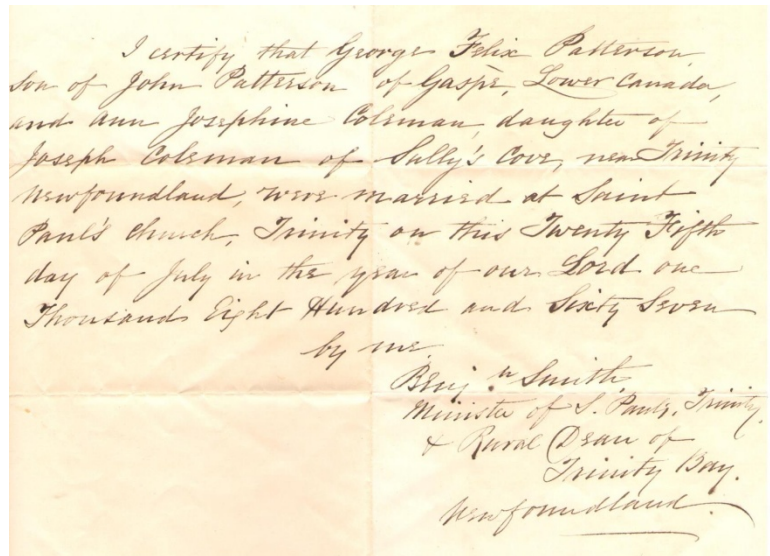 I certify that George Felix Patterson,
son of John Patterson of Gaspé, Lower Canada,
and Ann Josephine Coleman, daughter of
Joseph Coleman of Sally's Cove, near Trinity
Newfoundland, were married at Saint
Paul's Church, Trinity on this Twenty Fifth
day of July in the year of our Lord one
Thousand Eight Hundred and Sixty Seven
by me
Benjn Smith
Minister of S. Pauls, Trinity,
& Rural Dean of
Trinity Bay.
Newfoundland.